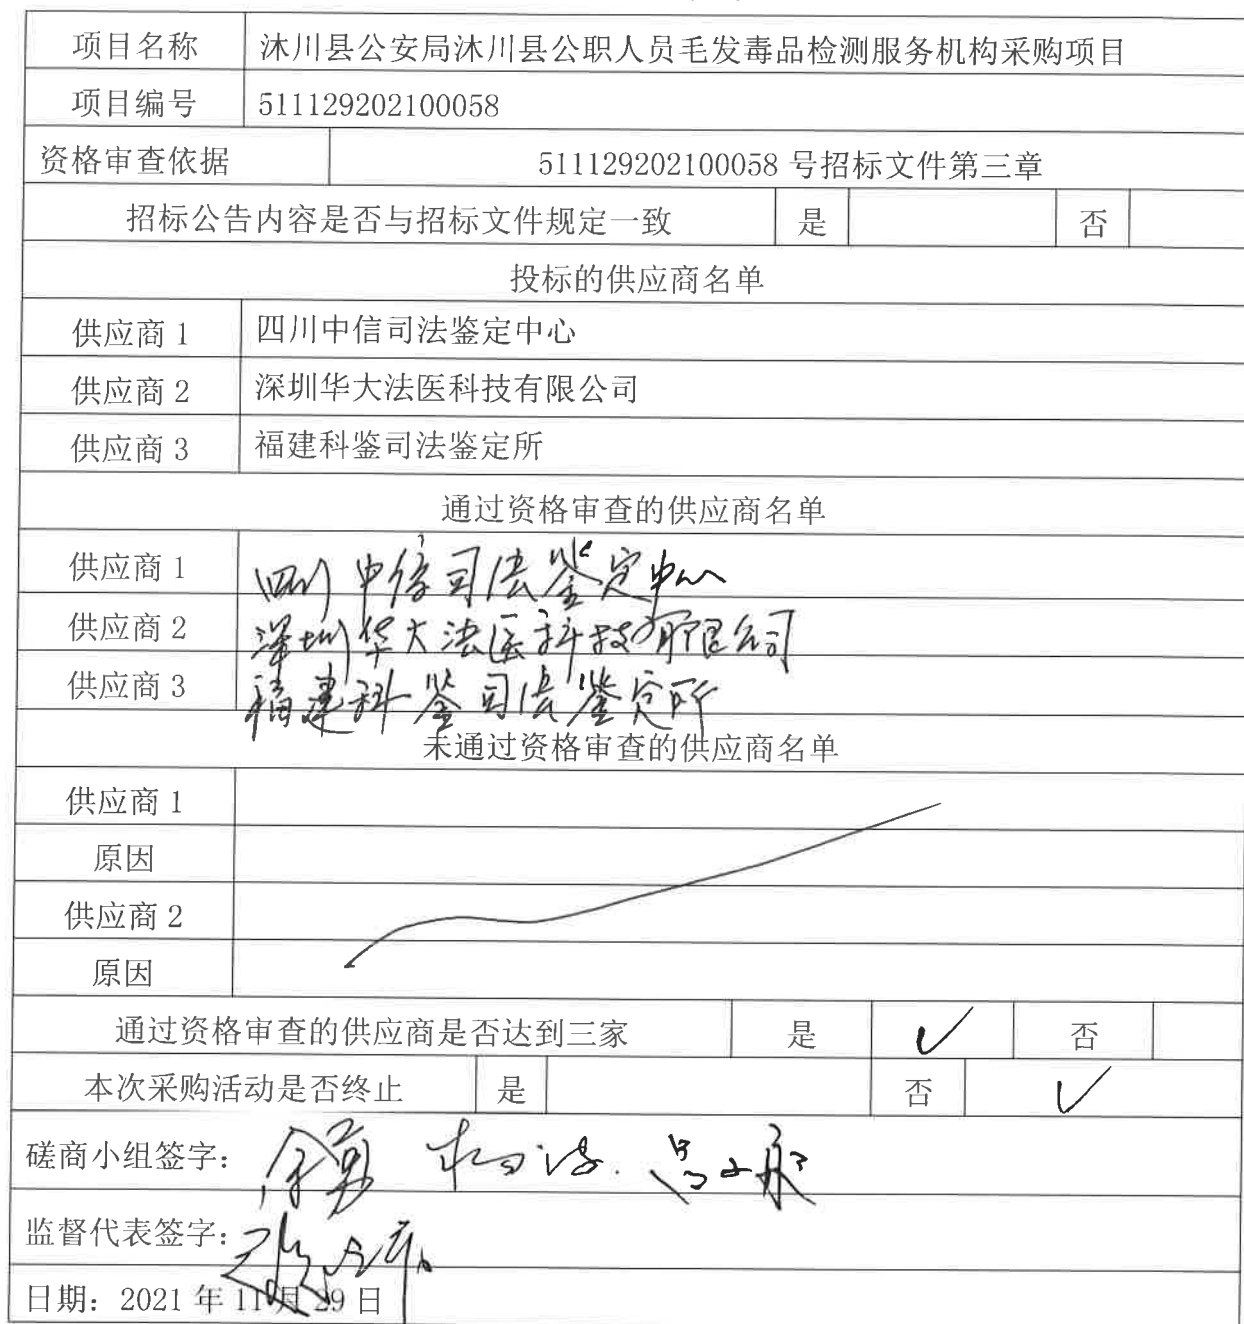 项目名称 沐川县公安局沐川县公职人员毛发毒品检测服务机构采购项目
项目编号 511129202100058
资格审查依据 511129202100058 号招标文件第三章
招标公告内容是否与招标文件规定一致 是 否
投标的供应商名单
供应商 1 四川中信司法鉴定中心
供应商 2 深圳华大法医科技有限公司
供应商 3 福建科鉴司法鉴定所
通过资格审查的供应商名单
供应商 1 四川中信司法鉴定中心
供应商 2 深圳华大法医科技有限公司
供应商 3 福建科鉴司法鉴定所
未通过资格审查的供应商名单
供应商 1
原因
供应商 2
原因
通过资格审查的供应商是否达到三家 是 ✓ 否
本次采购活动是否终止 是 否 ✓
磋商小组签字:
监督代表签字:
日期: 2021 年 11 月 29 日